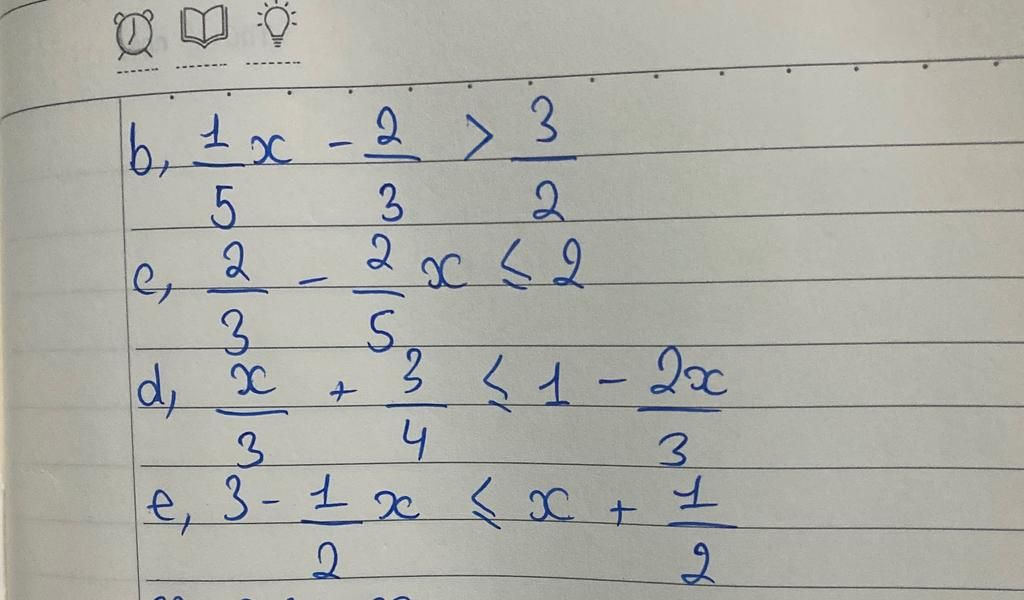 b, 1/5 x - 2/3 > 3/2
c, 2/3 - 2/5 x ≤ 2
d, x/3 + 3/4 ≤ 1 - 2x/3
e, 3 - 1/2 x ≤ x + 1/2